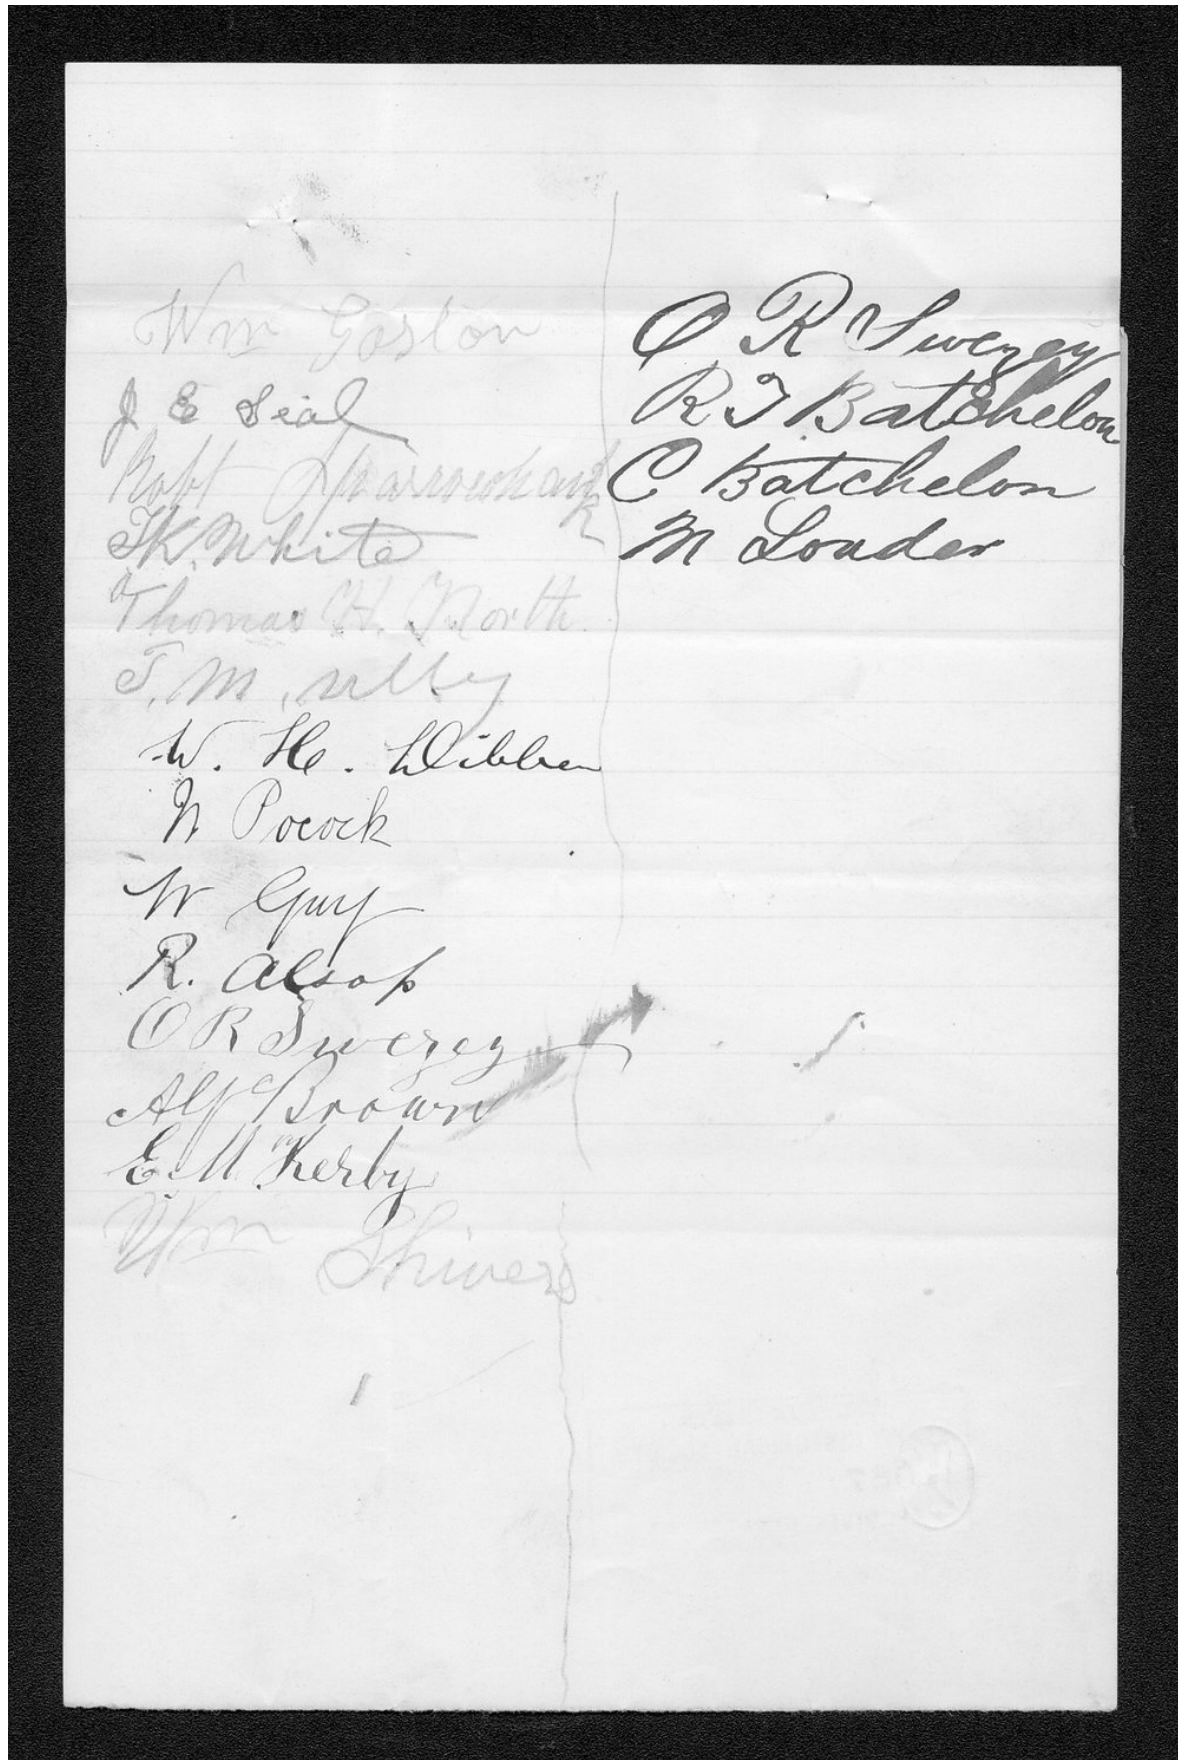 Wm Gaston
J E Seal
Robt Sparrowhawk
T.K. White
Thomas H. North.
T. M.
W. H. Dibben
N Pocock
W Guy
R. Alsop
O R Swezey
Alf Brown
E. M. Kerby
Wm Shivers
O R Swezey
R T Batchelor
C Batchelor
M Louder